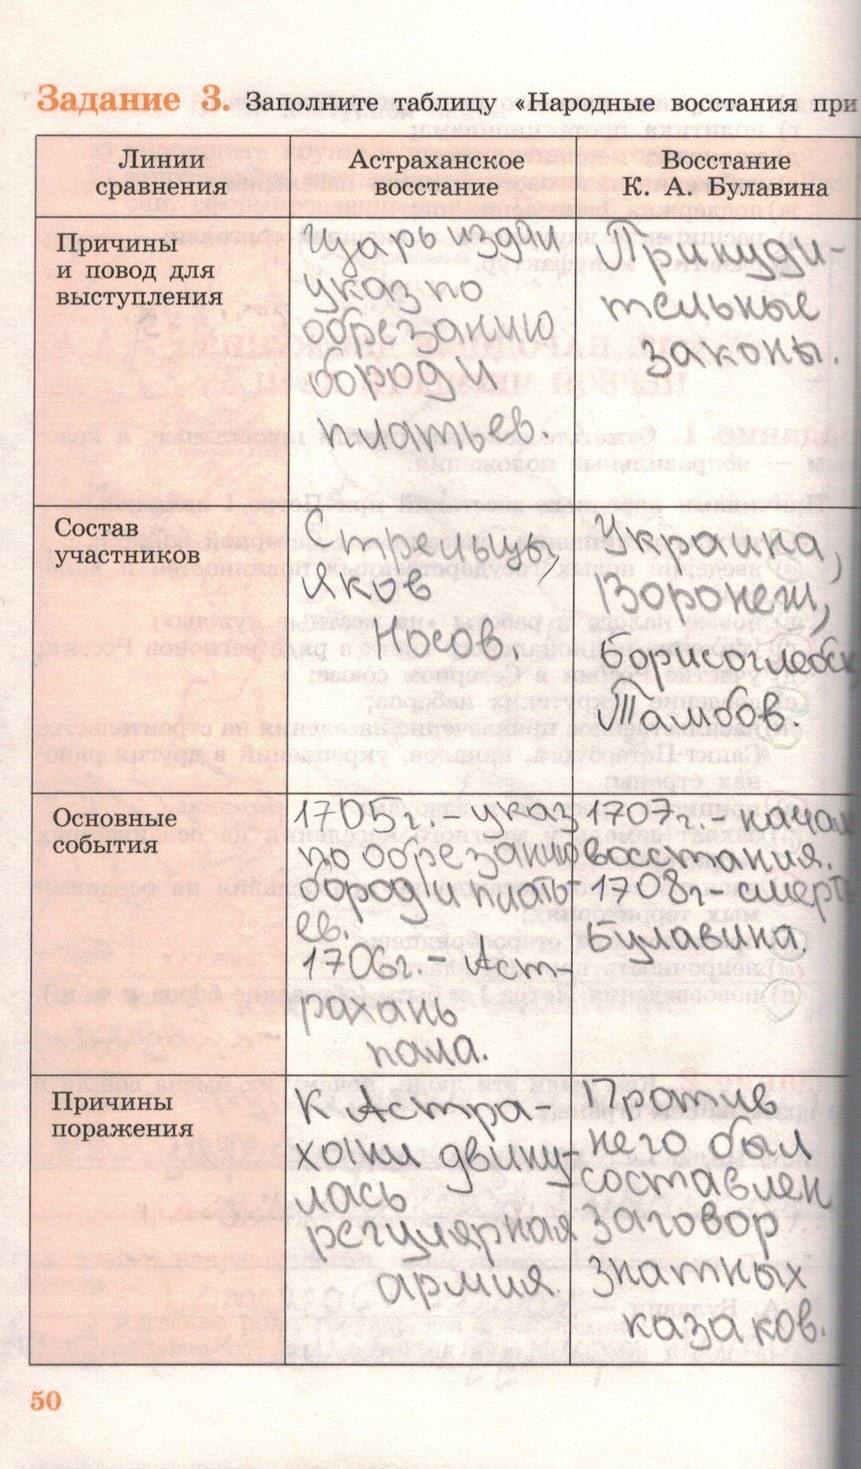 Задание 3. Заполните таблицу «Народные восстания при
Линии
сравнения
Астраханское
восстание
Восстание
К. А. Булавина
Причины
и повод для
выступления
Царь издал
указ по
обрезанию
бород и
платьев.
Принуди-
тельные
законы.
Состав
участников
Стрельцы,
Яков
Носов.
Украина,
Воронеж,
Борисоглебск
Тамбов.
Основные
события
1705г.- указ
по обрезанию
бород и плать-
ев.
1706г.- Аст-
рахань
пала.
1707г.- начал
восстания.
1708г- смерть
Булавина.
Причины
поражения
К Астра-
хани двину-
лась
регулярная
армия
Против
него был
составлен
заговор
знатных
казаков.
50